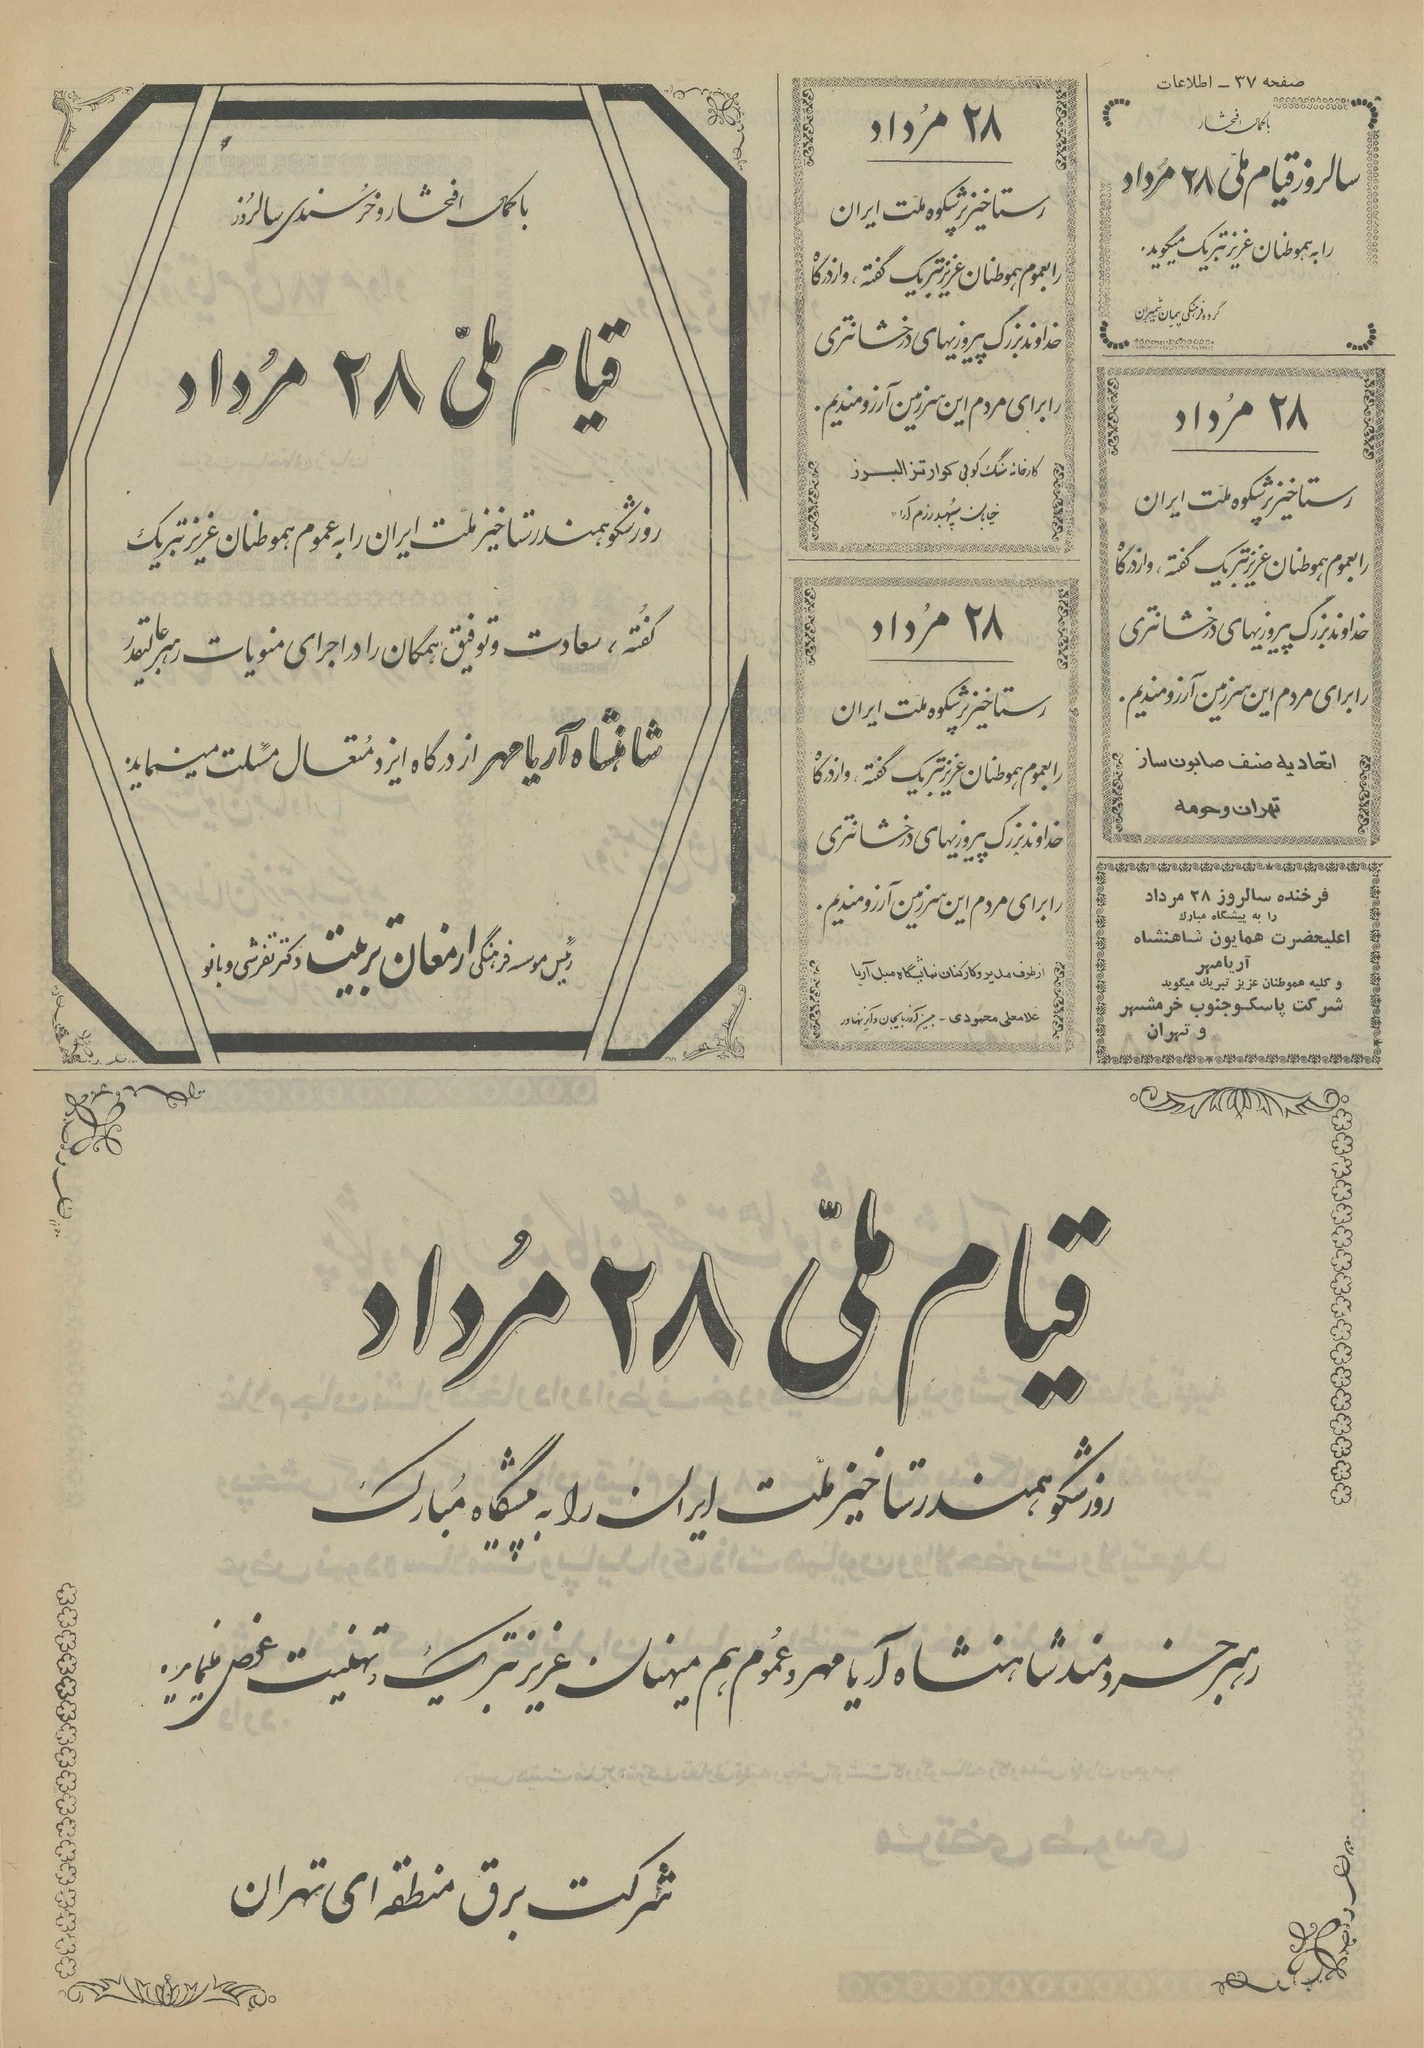 صفحه ۳۷ ـ اطلاعات
با کمال افتخار
سالروز قیام ملّی ۲۸ مُرداد
را به هموطنان عزیز تبریک میگوید.
گروه فرهنگی پیمان شمیران
۲۸ مُرداد
رستاخیز پرشکوه ملت ایران
را بعموم هموطنان عزیز تبریک گفته، و از درگاه
خداوند بزرگ پیروزیهای درخشانتری
را برای مردم این سرزمین آرزومندیم.
اتحادیه صنف صابون ساز
تهران و حومه
فرخنده سالروز ۲۸ مرداد
را به پیشگاه مبارک
اعلیحضرت همایون شاهنشاه
آریامهر
و کلیه هموطنان عزیز تبریک میگوید
شرکت پاسکو جنوب خرمشهر
و تهران
۲۸ مُرداد
رستاخیز پرشکوه ملت ایران
را بعموم هموطنان عزیز تبریک گفته، و از درگاه
خداوند بزرگ پیروزیهای درخشانتری
را برای مردم این سرزمین آرزومندیم.
کارخانه سنگ کوبی کوارتز البرز
خیابان سپهبد رزم آرا
۲۸ مُرداد
رستاخیز پرشکوه ملت ایران
را بعموم هموطنان عزیز تبریک گفته، و از درگاه
خداوند بزرگ پیروزیهای درخشانتری
را برای مردم این سرزمین آرزومندیم.
از طرف مدیر و کارکنان نمایشگاه مبل آریا
غلامعلی محمودی - بین آذربایجان و
با کمال افتخار و خرسندی سالروز
قیام ملّی ۲۸ مُرداد
روز شکوهمند رستاخیز ملت ایران را به عموم هموطنان عزیز تبریک
گفته، سعادت و توفیق همگان را در اجرای منویات رهبر عالیقدر
شاهنشاه آریامهر از درگاه ایزد مُتعال مسئلت مینماید.
رئیس موسسه فرهنگی ارمغان تربیت دکتر تفرشی و بانو
قیام ملّی ۲۸ مُرداد
روز شکوهمند رستاخیز ملّت ایران را به پیشگاه مُبارک
رهبر خردمند شاهنشاه آریامهر و عُموم هم میهنان عزیز تبریک و تهنیت عرض مینماید.
شرکت برق منطقه ای تهران